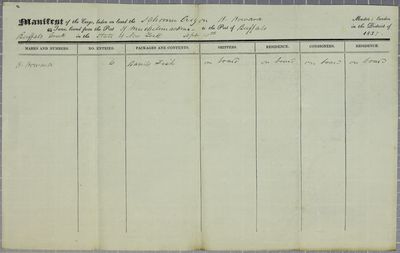 Manifest of the Cargo, laden on board the Schooner Oregon H. Howard Master: burden
Tons, bound from the Port of Michilimackinac to the Port of Buffalo in the District of
Buffalo Creek in the State of New York Sept 1837.
MARKS AND NUMBERS. NO. ENTRIES. PACKAGES AND CONTENTS. SHIPPERS. RESIDENCE. CONSIGNEES. RESIDENCE.
H. Howard 6 Barrels Fish on board on board on board on board